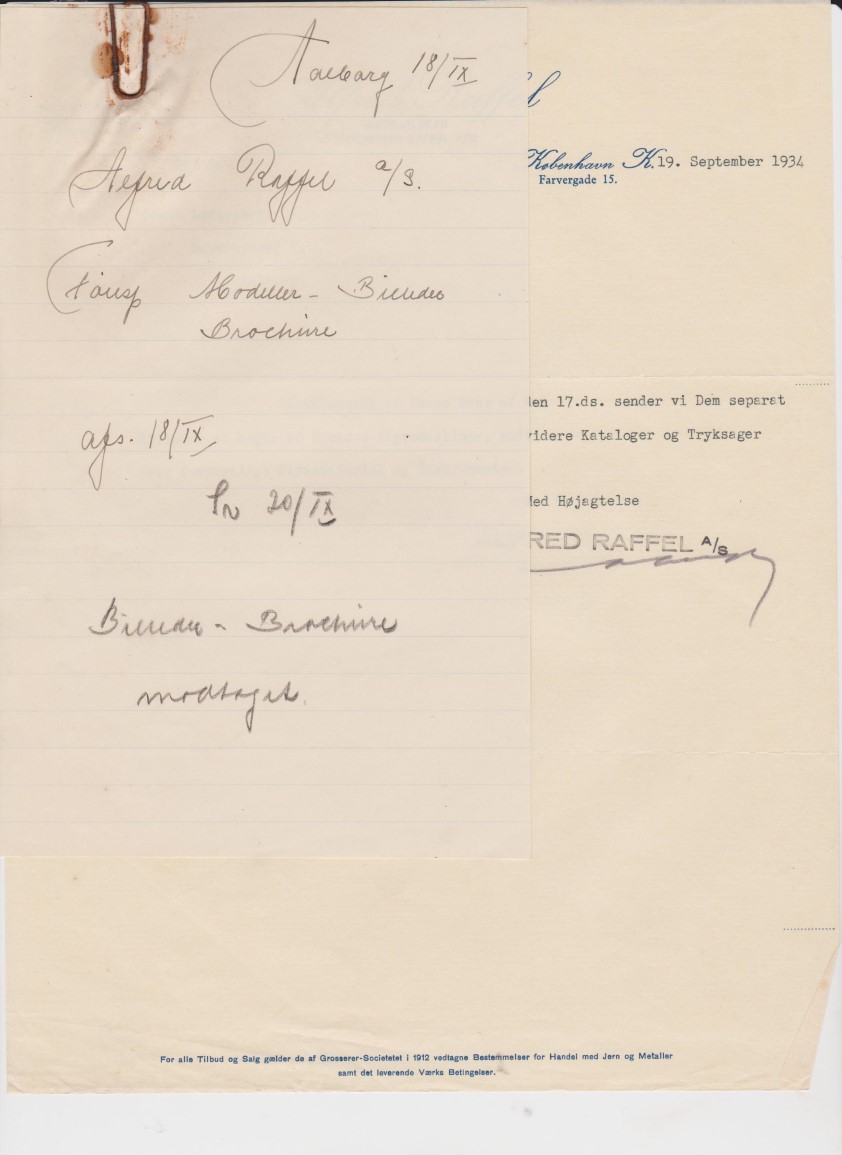 Aalborg 18/IX
Alfred Raffel a/s.
Modeller - Biluden
Brochure
afs. 18/IX
20/IX
Biluden - Brochure
modtaget.
København K. 19. September 1934
Farvergade 15.
den 17.ds. sender vi Dem separat
videre Kataloger og Tryksager
Med Højagtelse
RED RAFFEL A/S
For alle Tilbud og Salg gælder de af Grosserer-Societetet i 1912 vedtagne Bestemmelser for Handel med Jern og Metaller
samt det leverende Værks Betingelser.